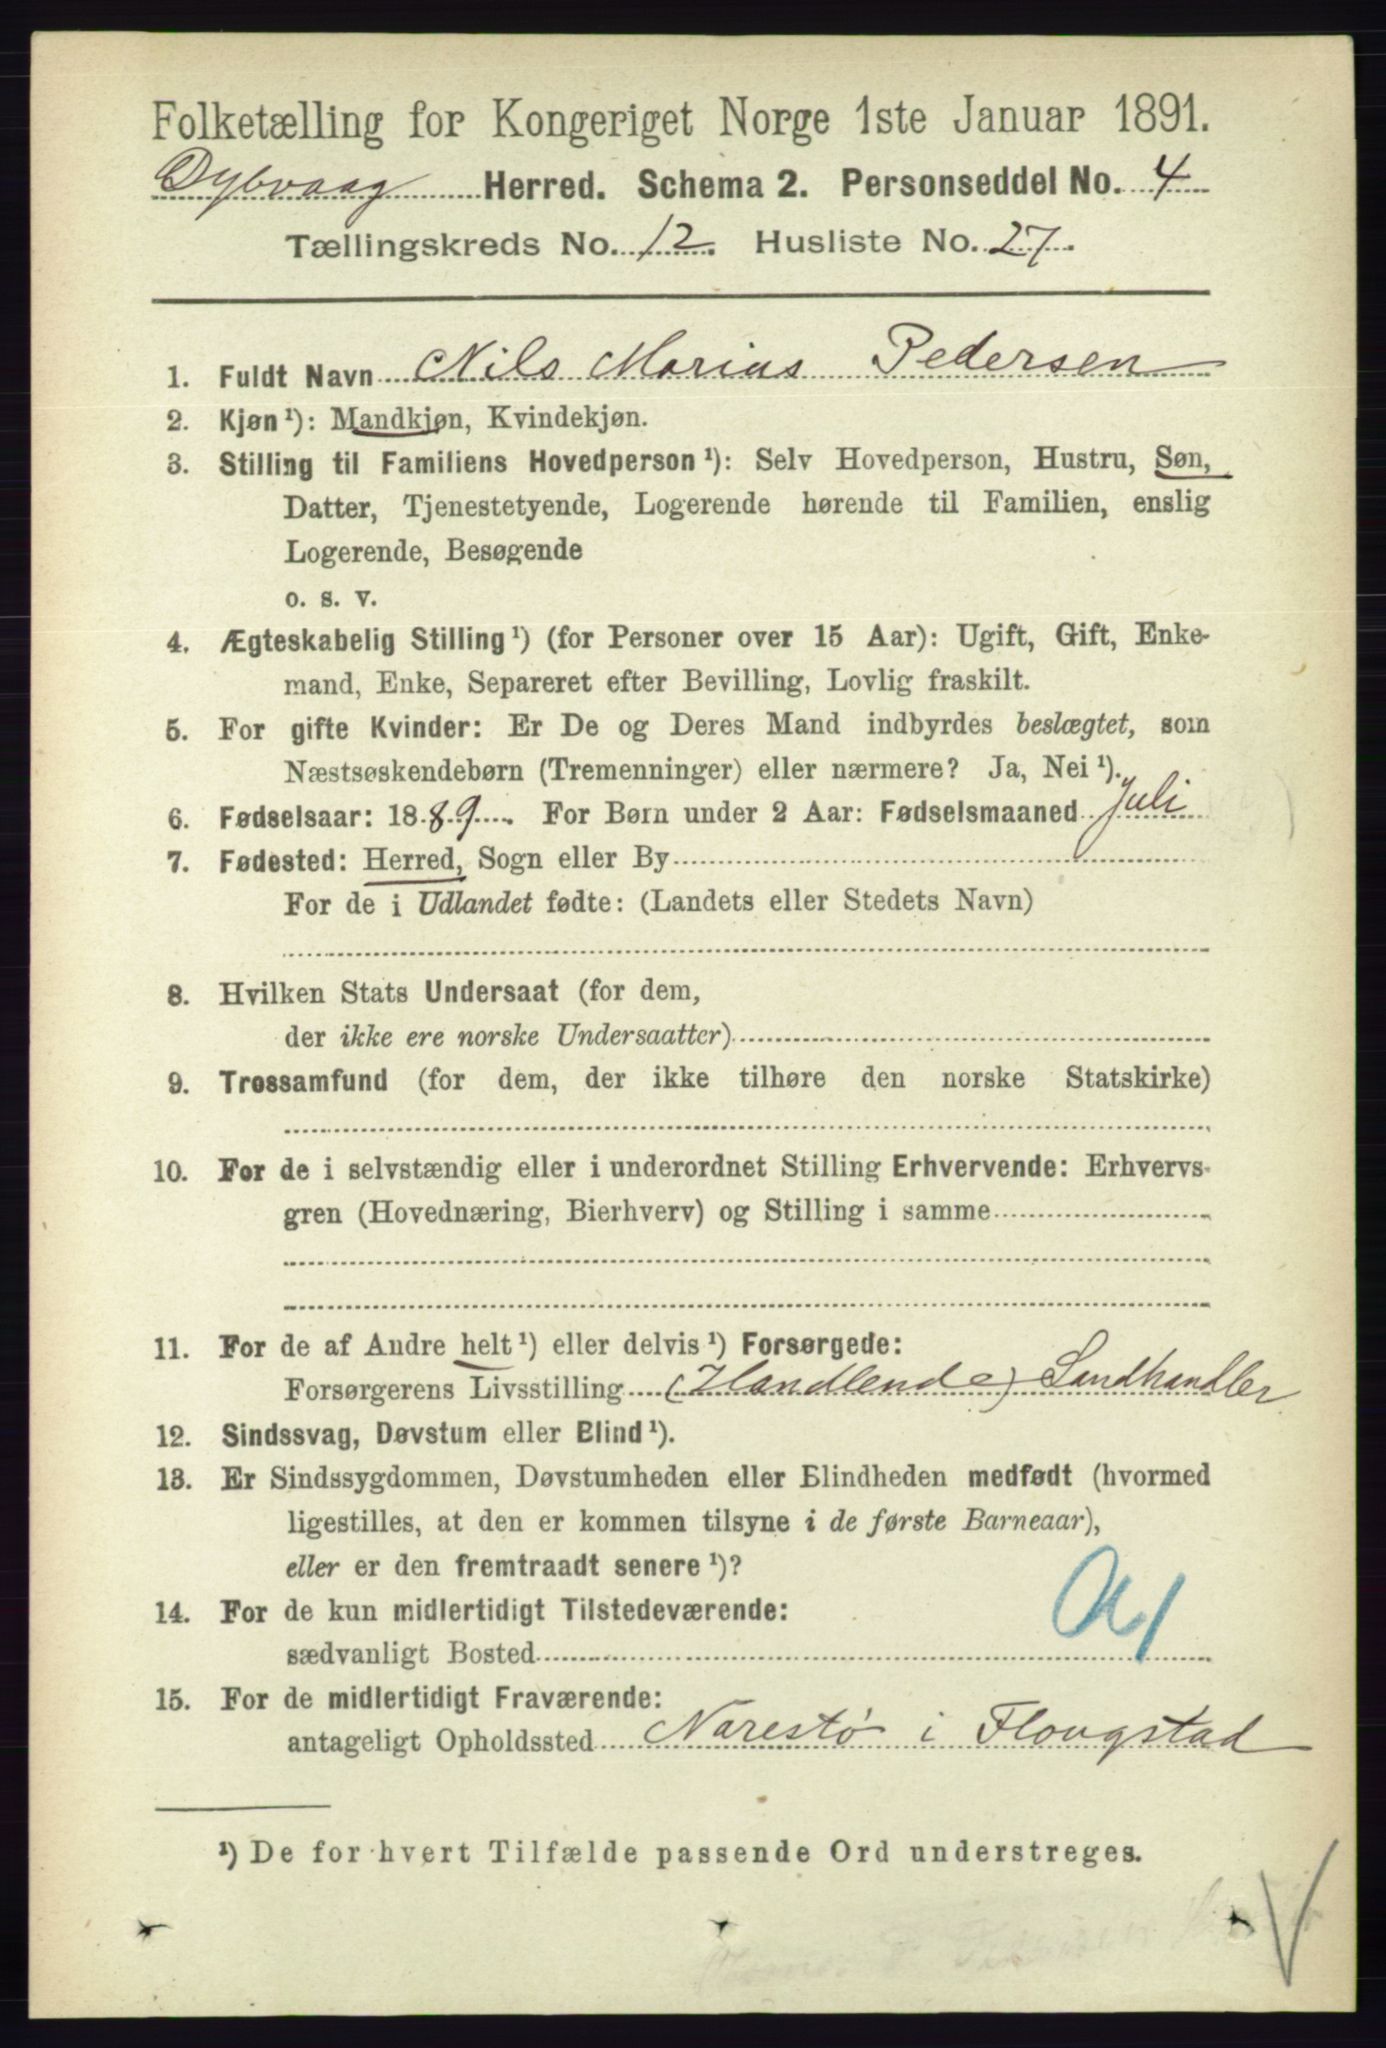 Folketælling for Kongeriget Norge 1ste Januar 1891.
Dybvaag Herred. Schema 2. Personseddel No. 4
Tællingskreds No. 12. Husliste No. 27.
1. Fuldt Navn Nils Marius Pedersen
2. Kjøn¹): Mandkjøn, Kvindekjøn.
3. Stilling til Familiens Hovedperson¹): Selv Hovedperson, Hustru, Søn,
Datter, Tjenestetyende, Logerende hørende til Familien, enslig
Logerende, Besøgende
o. s. v.
4. Ægteskabelig Stilling¹) (for Personer over 15 Aar): Ugift, Gift, Enke-
mand, Enke, Separeret efter Bevilling, Lovlig fraskilt.
5. For gifte Kvinder: Er De og Deres Mand indbyrdes beslægtet, som
Næstsøskendebørn (Tremenninger) eller nærmere? Ja, Nei¹).
6. Fødselsaar: 1889. For Børn under 2 Aar: Fødselsmaaned Juli
7. Fødested: Herred, Sogn eller By
For de i Udlandet fødte: (Landets eller Stedets Navn)
8. Hvilken Stats Undersaat (for dem,
der ikke ere norske Undersaatter)
9. Trossamfund (for dem, der ikke tilhøre den norske Statskirke)
10. For de i selvstændig eller i underordnet Stilling Erhvervende: Erhvervs-
gren (Hovednæring, Bierhverv) og Stilling i samme
11. For de af Andre helt¹) eller delvis¹) Forsørgede:
Forsørgerens Livsstilling (Handlende) Landhandler
12. Sindssvag, Døvstum eller Blind¹).
13. Er Sindssygdommen, Døvstumheden eller Blindheden medfødt (hvormed
ligestilles, at den er kommen tilsyne i de første Barneaar),
eller er den fremtraadt senere¹)?
14. For de kun midlertidigt Tilstedeværende:
sædvanligt Bosted
15. For de midlertidigt Fraværende:
antageligt Opholdssted Narestø i Flougstad
¹) De for hvert Tilfælde passende Ord understreges.